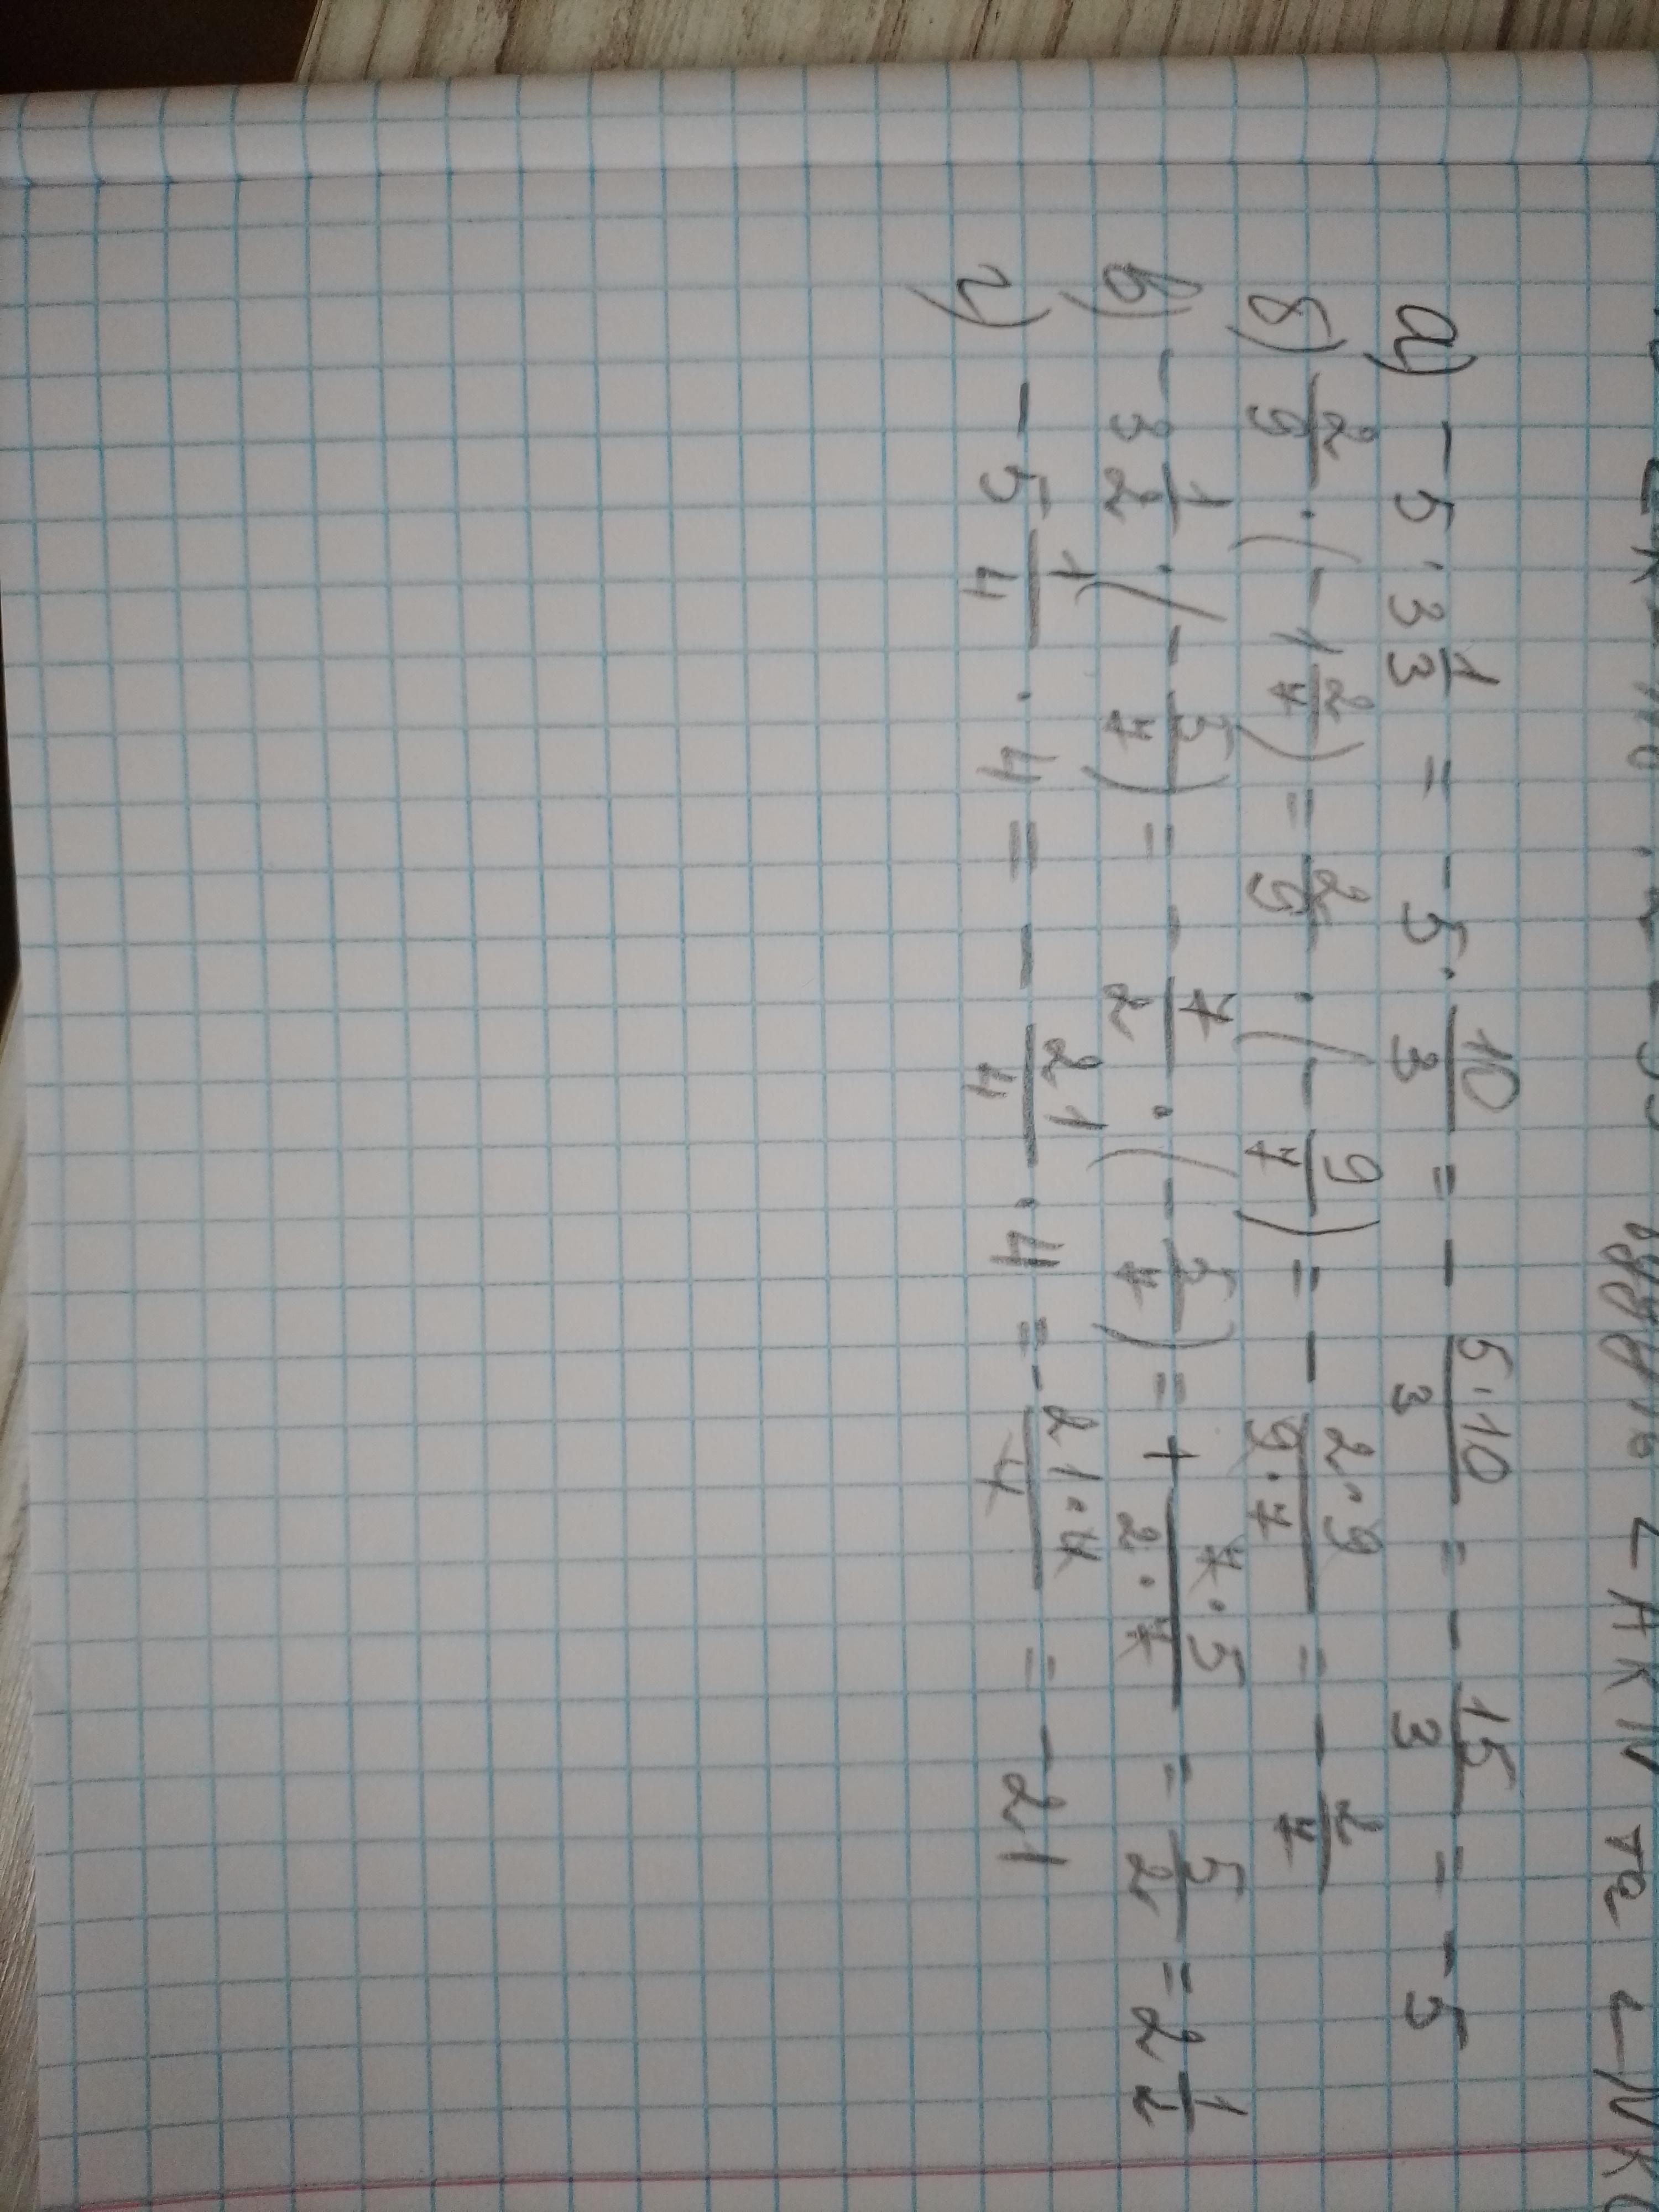 а) - 5 · 3 1/3 = - 5 · 10/3 = - 5·10/3 = - 15/3 = - 5
б) 2/9 · (- 1 2/7) = 2/9 · (- 9/7) = - 2·9/9·7 = - 2/7
в) - 3 1/2 · (- 5/7) = - 7/2 · (- 5/7) = + 7·5/2·7 = 5/2 = 2 1/2
г) - 5 1/4 · 4 = - 21/4 · 4 = - 21·4/4 = - 21